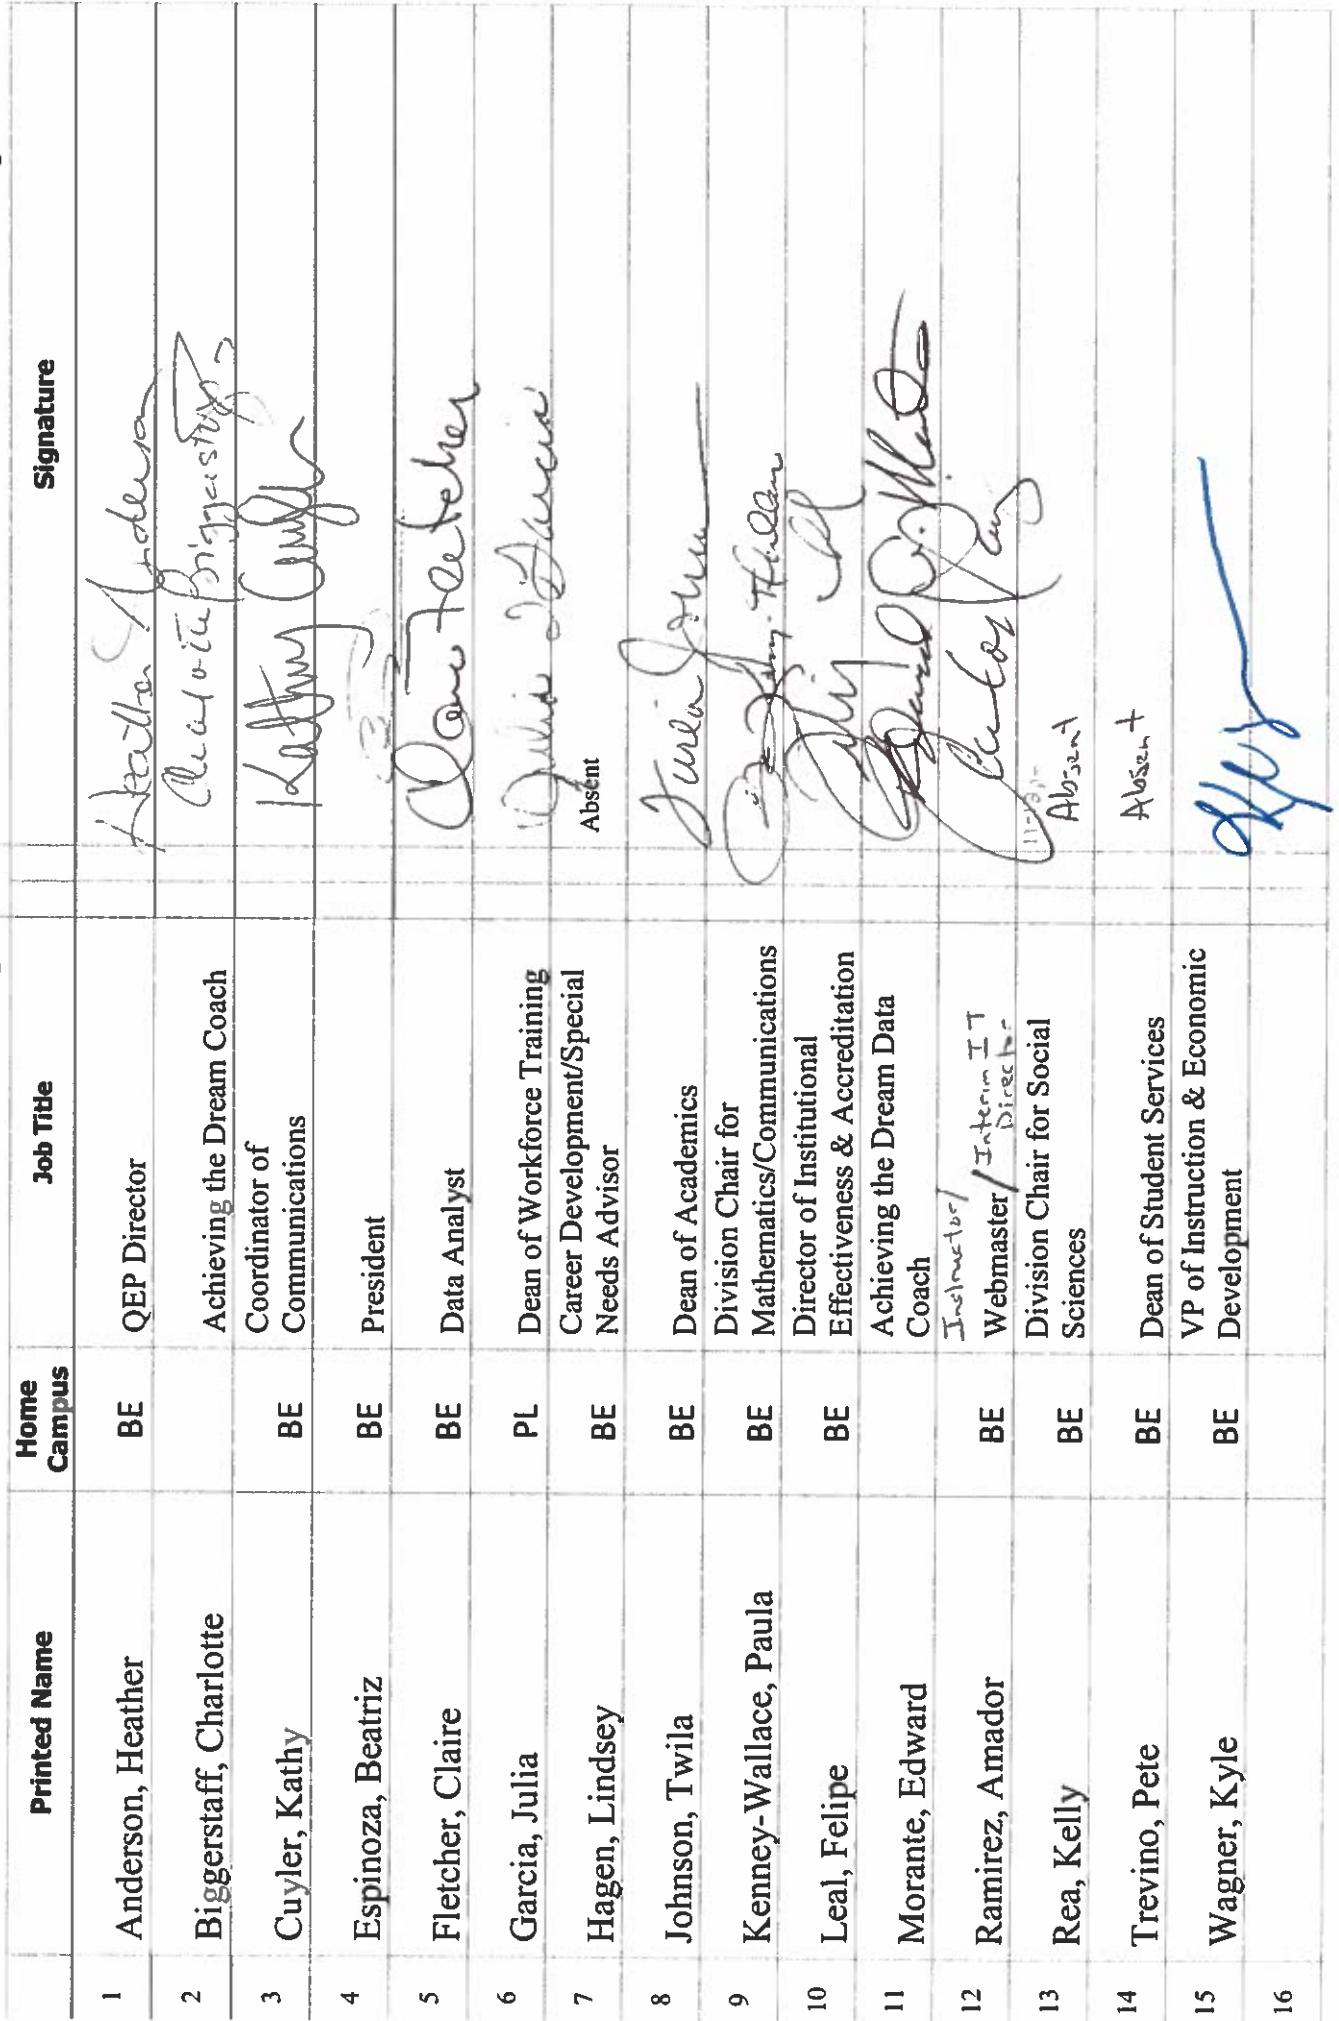 Printed Name Home Campus Job Title Signature
1 Anderson, Heather BE QEP Director Heather Anderson
2 Biggerstaff, Charlotte Achieving the Dream Coach Charlotte Biggerstaff
3 Cuyler, Kathy BE Coordinator of
Communications Kathy Cuyler
4 Espinoza, Beatriz BE President
5 Fletcher, Claire BE Data Analyst Claire Fletcher
6 Garcia, Julia PL Dean of Workforce Training Julia Garcia
7 Hagen, Lindsey BE Career Development/Special
Needs Advisor Absent
8 Johnson, Twila BE Dean of Academics Twila Johnson
9 Kenney-Wallace, Paula BE Division Chair for
Mathematics/Communications
10 Leal, Felipe BE Director of Institutional
Effectiveness & Accreditation
11 Morante, Edward Achieving the Dream Data
Coach
Instructor/
12 Ramirez, Amador BE Webmaster / Interim IT
Director
13 Rea, Kelly BE Division Chair for Social
Sciences Absent
14 Trevino, Pete BE Dean of Student Services Absent
15 Wagner, Kyle BE VP of Instruction & Economic
Development
16